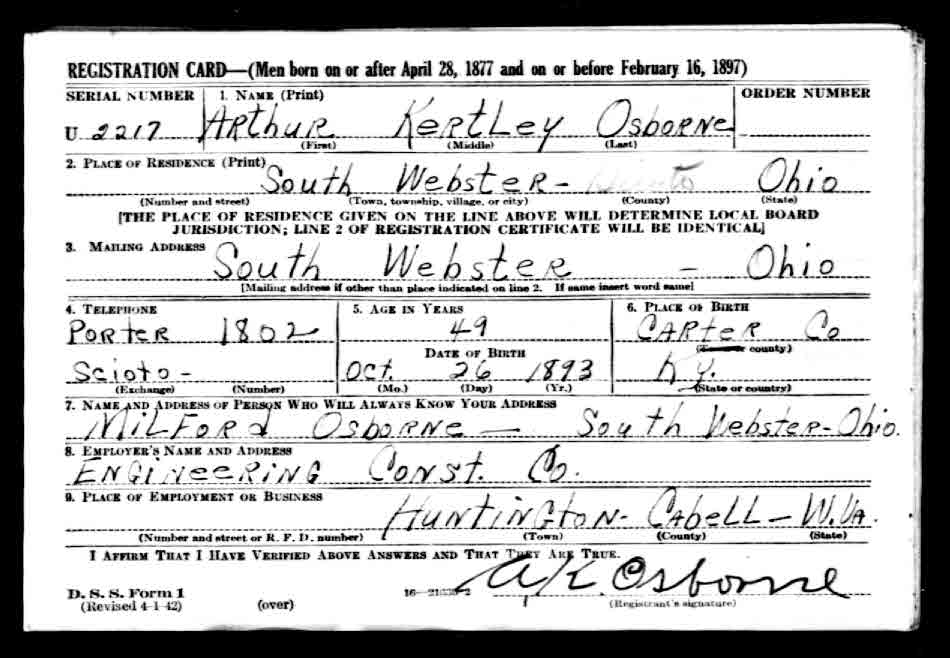 REGISTRATION CARD—(Men born on or after April 28, 1877 and on or before February 16, 1897)
SERIAL NUMBER 1. NAME (Print) ORDER NUMBER
U 2217 ARthuR KeRtLey OsboRNe
(First) (Middle) (Last)
2. PLACE OF RESIDENCE (Print)
South WebsteR- Ohio
(Number and street) (Town, township, village, or city) (County) (State)
[THE PLACE OF RESIDENCE GIVEN ON THE LINE ABOVE WILL DETERMINE LOCAL BOARD
JURISDICTION; LINE 2 OF REGISTRATION CERTIFICATE WILL BE IDENTICAL]
3. MAILING ADDRESS
South Webster - Ohio
[Mailing address if other than place indicated on line 2. If same insert word same]
4. TELEPHONE 5. AGE IN YEARS 6. PLACE OF BIRTH
PoRteR 1802 49 CARteR Co
DATE OF BIRTH (Town or county)
Scioto - Oct. 26 1893 Ky.
(Exchange) (Number) (Mo.) (Day) (Yr.) (State or country)
7. NAME AND ADDRESS OF PERSON WHO WILL ALWAYS KNOW YOUR ADDRESS
MiLFoRd OsboRNe — South Webster-Ohio.
8. EMPLOYER'S NAME AND ADDRESS
ENGiNeeRiNG Const. Co.
9. PLACE OF EMPLOYMENT OR BUSINESS
HuNtiNGtoN- CAbeLL - W.VA.
(Number and street or R. F. D. number) (Town) (County) (State)
I AFFIRM THAT I HAVE VERIFIED ABOVE ANSWERS AND THAT THEY ARE TRUE.
A.K. Osborne
D. S. S. Form 1
(Revised 4-1-42) (over) (Registrant's signature)